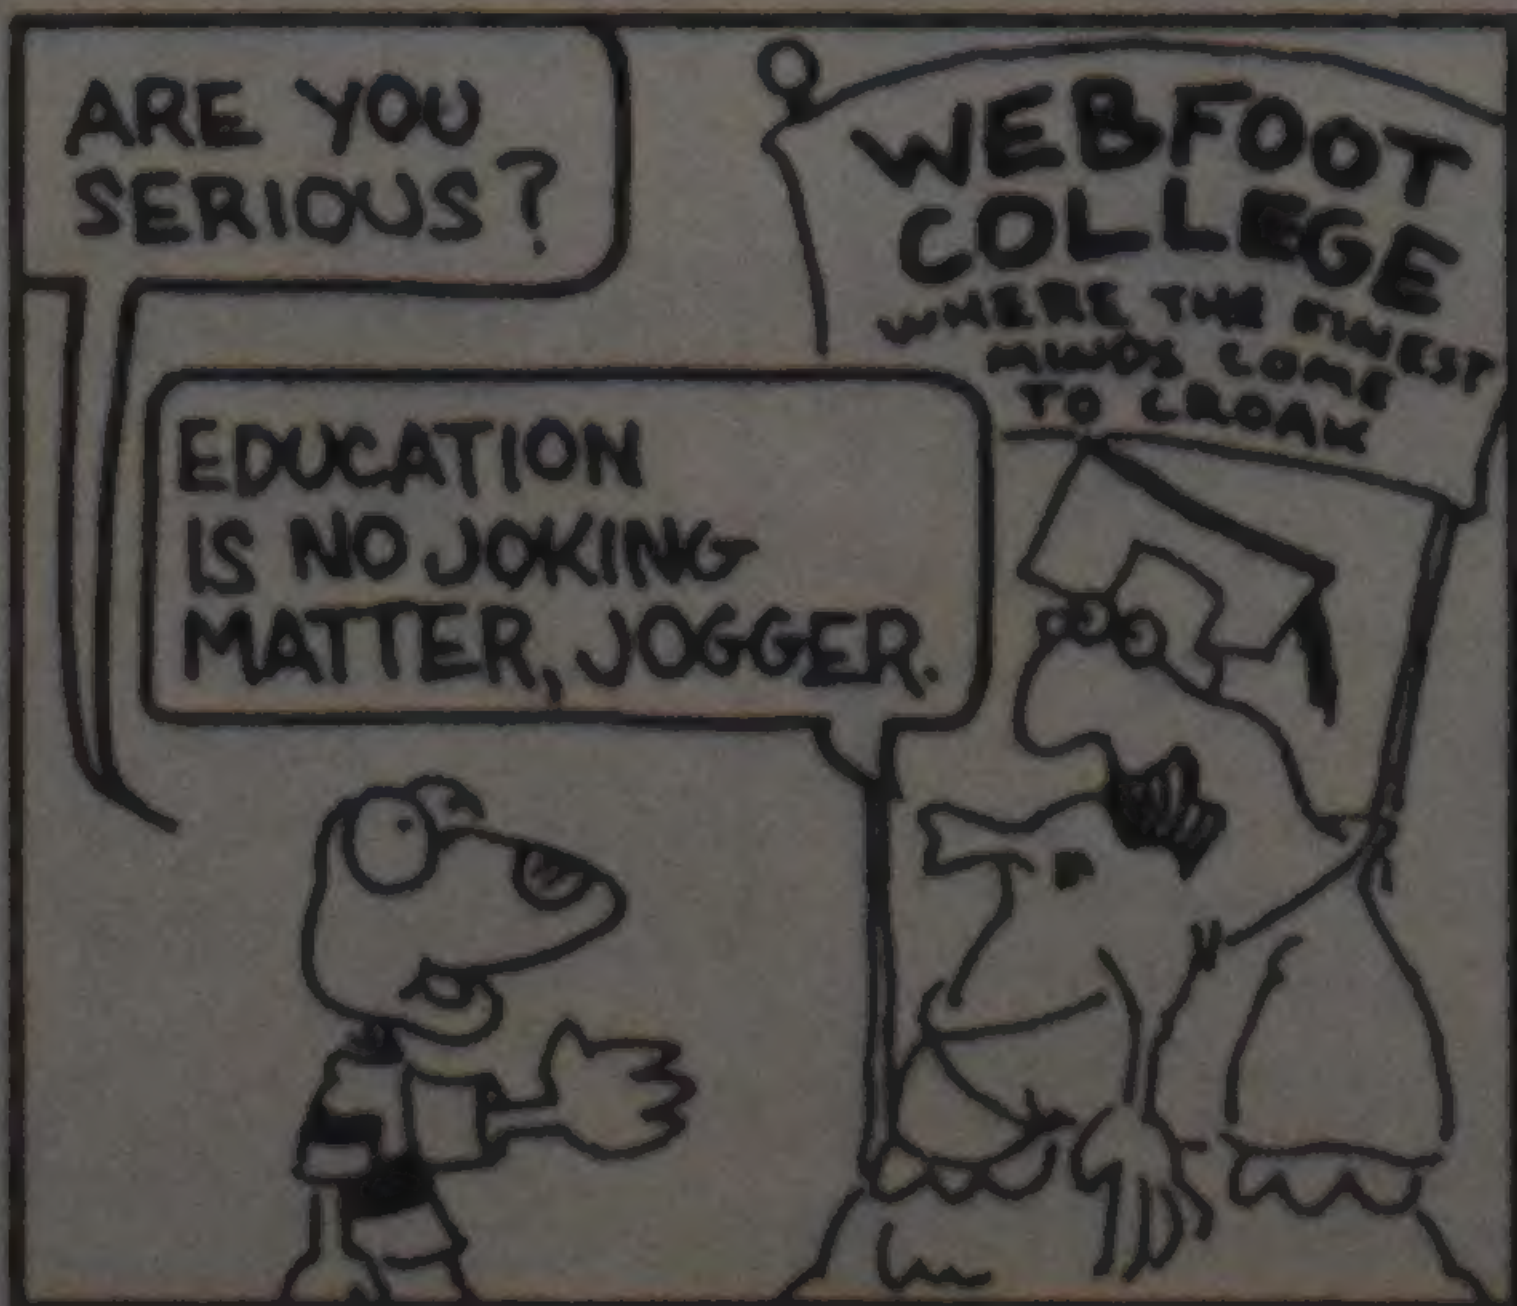 ARE YOU
SERIOUS?
WEBFOOT
COLLEGE
WHERE THE FINEST
MINDS COME
TO CROAK
EDUCATION
IS NO JOKING
MATTER, JOGGER.